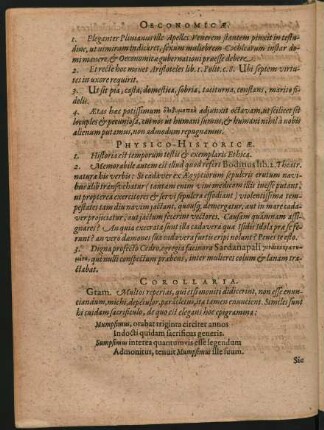 OECONOMICÆ.
1. Eleganter Plutianus ille Apelles Venerem stantem pinxit in testu-
dine, ut nimirum indicaret, sexum muliebrem Cochlearum instar do-
mi manere, & Oeconomicæ gubernationi præesse debere.
2. Et recte hoc monet Aristoteles lib. 1. Polit. c. 8. Ubi septem virtu-
tes in uxore requirit.
3. Ut sit pia, casta, domestica, sobria, taciturna, constans, marito fi-
delis.
4. Ætas hæc potissimum adjunxit octavam, ut scilicet sit
& pecuniosa, tametsi ut humani simus, & humani nihil à nobis
alienum putamus, non admodum repugnamus.
PHYSICO-HISTORICÆ
1. Historia est temporum testis & exemplaris Ethica.
2. Memorabile autem est illud quod refert Bodinus lib. 2. Theatr.
naturæ his verbis: Si cadaver ex Ægyptiorum sepulcris erutum navi-
bus alio transvehatur (tantam enim vim medicam illis inesse putant;
ut propterea exercitores & servi sepulcra effodiant) violentissimæ tem-
pestates tam diu navim jactant, quoad submergatur, aut in mare cada-
ver projiciatur, aut pactum fecerint vectores. Causam quænam assi-
gnaret? An quia execrata sunt illa cadavera quæ Isidis idola præ se fe-
runt? an vero dæmones illa cadavera surripi nolunt? Penes te esto.
3. Digna profecto Cedro, propria facinora Sardanapali
qui nulli conspectum præbens, inter mulieres colum & lanam tra-
ctabat.
COROLLARIA.
Gram. Multos reperias, qui etsi moniti didicerint, non esse enun-
tiandum, michi, depeculor, pardicium, ita tamen enunciant. Similes sunt
his cuidam sacrificulo, de quo est elegans hoc epigramma:
Mumpsimus, orabat triginta circiter annos
Indocti quidam sacrificus generis.
Sumpsimus interea quamquam is esse legendum
Admonitus, tenuit Mumpsimus ille suum.
Sic